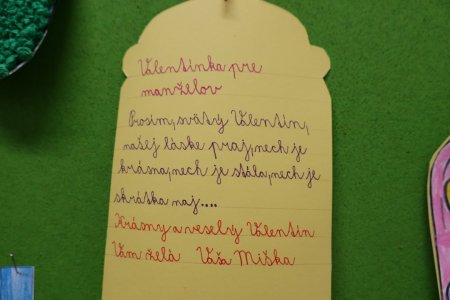 Valentínka pre
manželov
Prosím, svätý Valentín,
našej láske praj, nech je
krásna, nech je stála, nech je
skrátka naj....
Krásny a veselý Valentín
Vám želá Vaša Miška